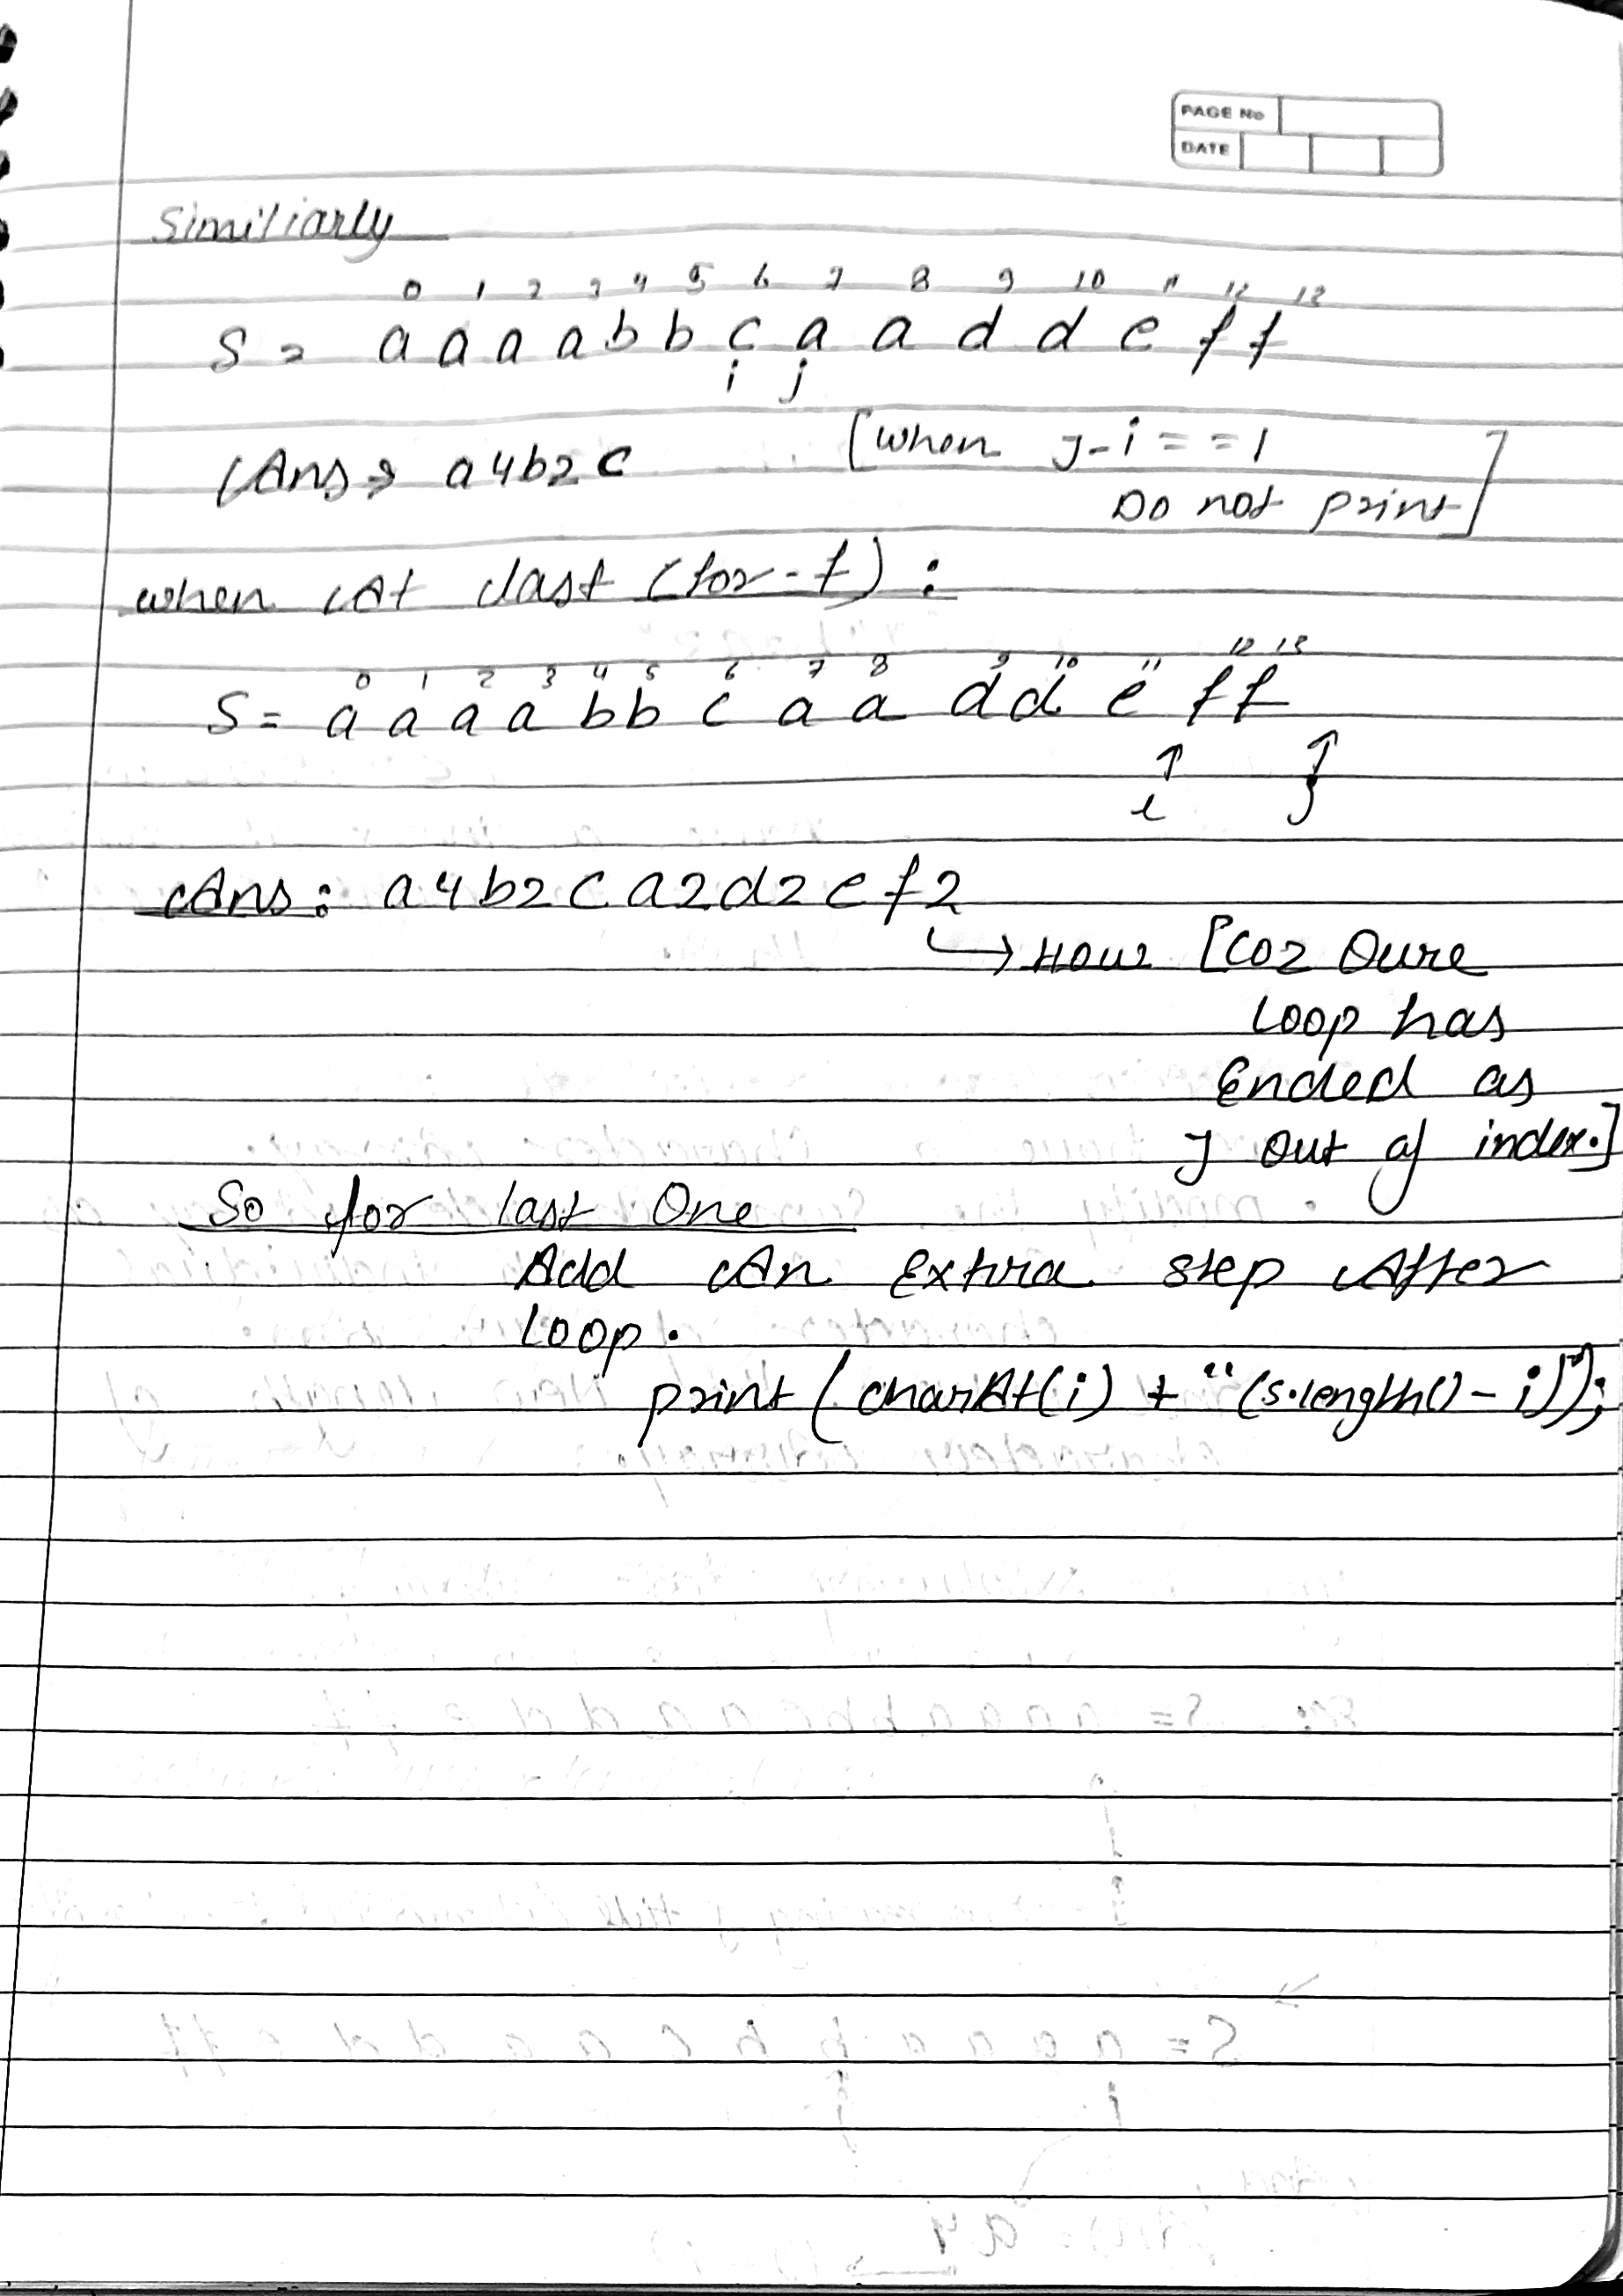 PAGE No
DATE
Similiarly
0 1 2 3 4 5 6 7 8 9 10 11 12 13
S = a a a a b b c a a d d e f f
i j
Ans → a4b2c [when J-i==1
Do not print]
when At last (for-f) :
0 1 2 3 4 5 6 7 8 9 10 11 12 13
S = a a a a b b c a a d d e f f
↑ ↑
i j
Ans: a4b2ca2d2ef2
↳ How [Coz Oure
Loop has
Ended as
J out of index.]
So for last One
Add An Extra step After
Loop.
print (charAt(i) + "(s.length() - i)");